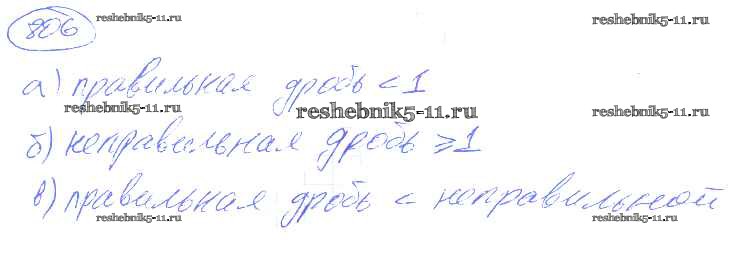 806
reshebnik5-11.ru reshebnik5-11.ru
а) правильная дробь < 1
reshebnik5-11.ru reshebnik5-11.ru reshebnik5-11.ru
б) неправильная дробь ⩾ 1
в) правильная дробь < неправильной
reshebnik5-11.ru reshebnik5-11.ru